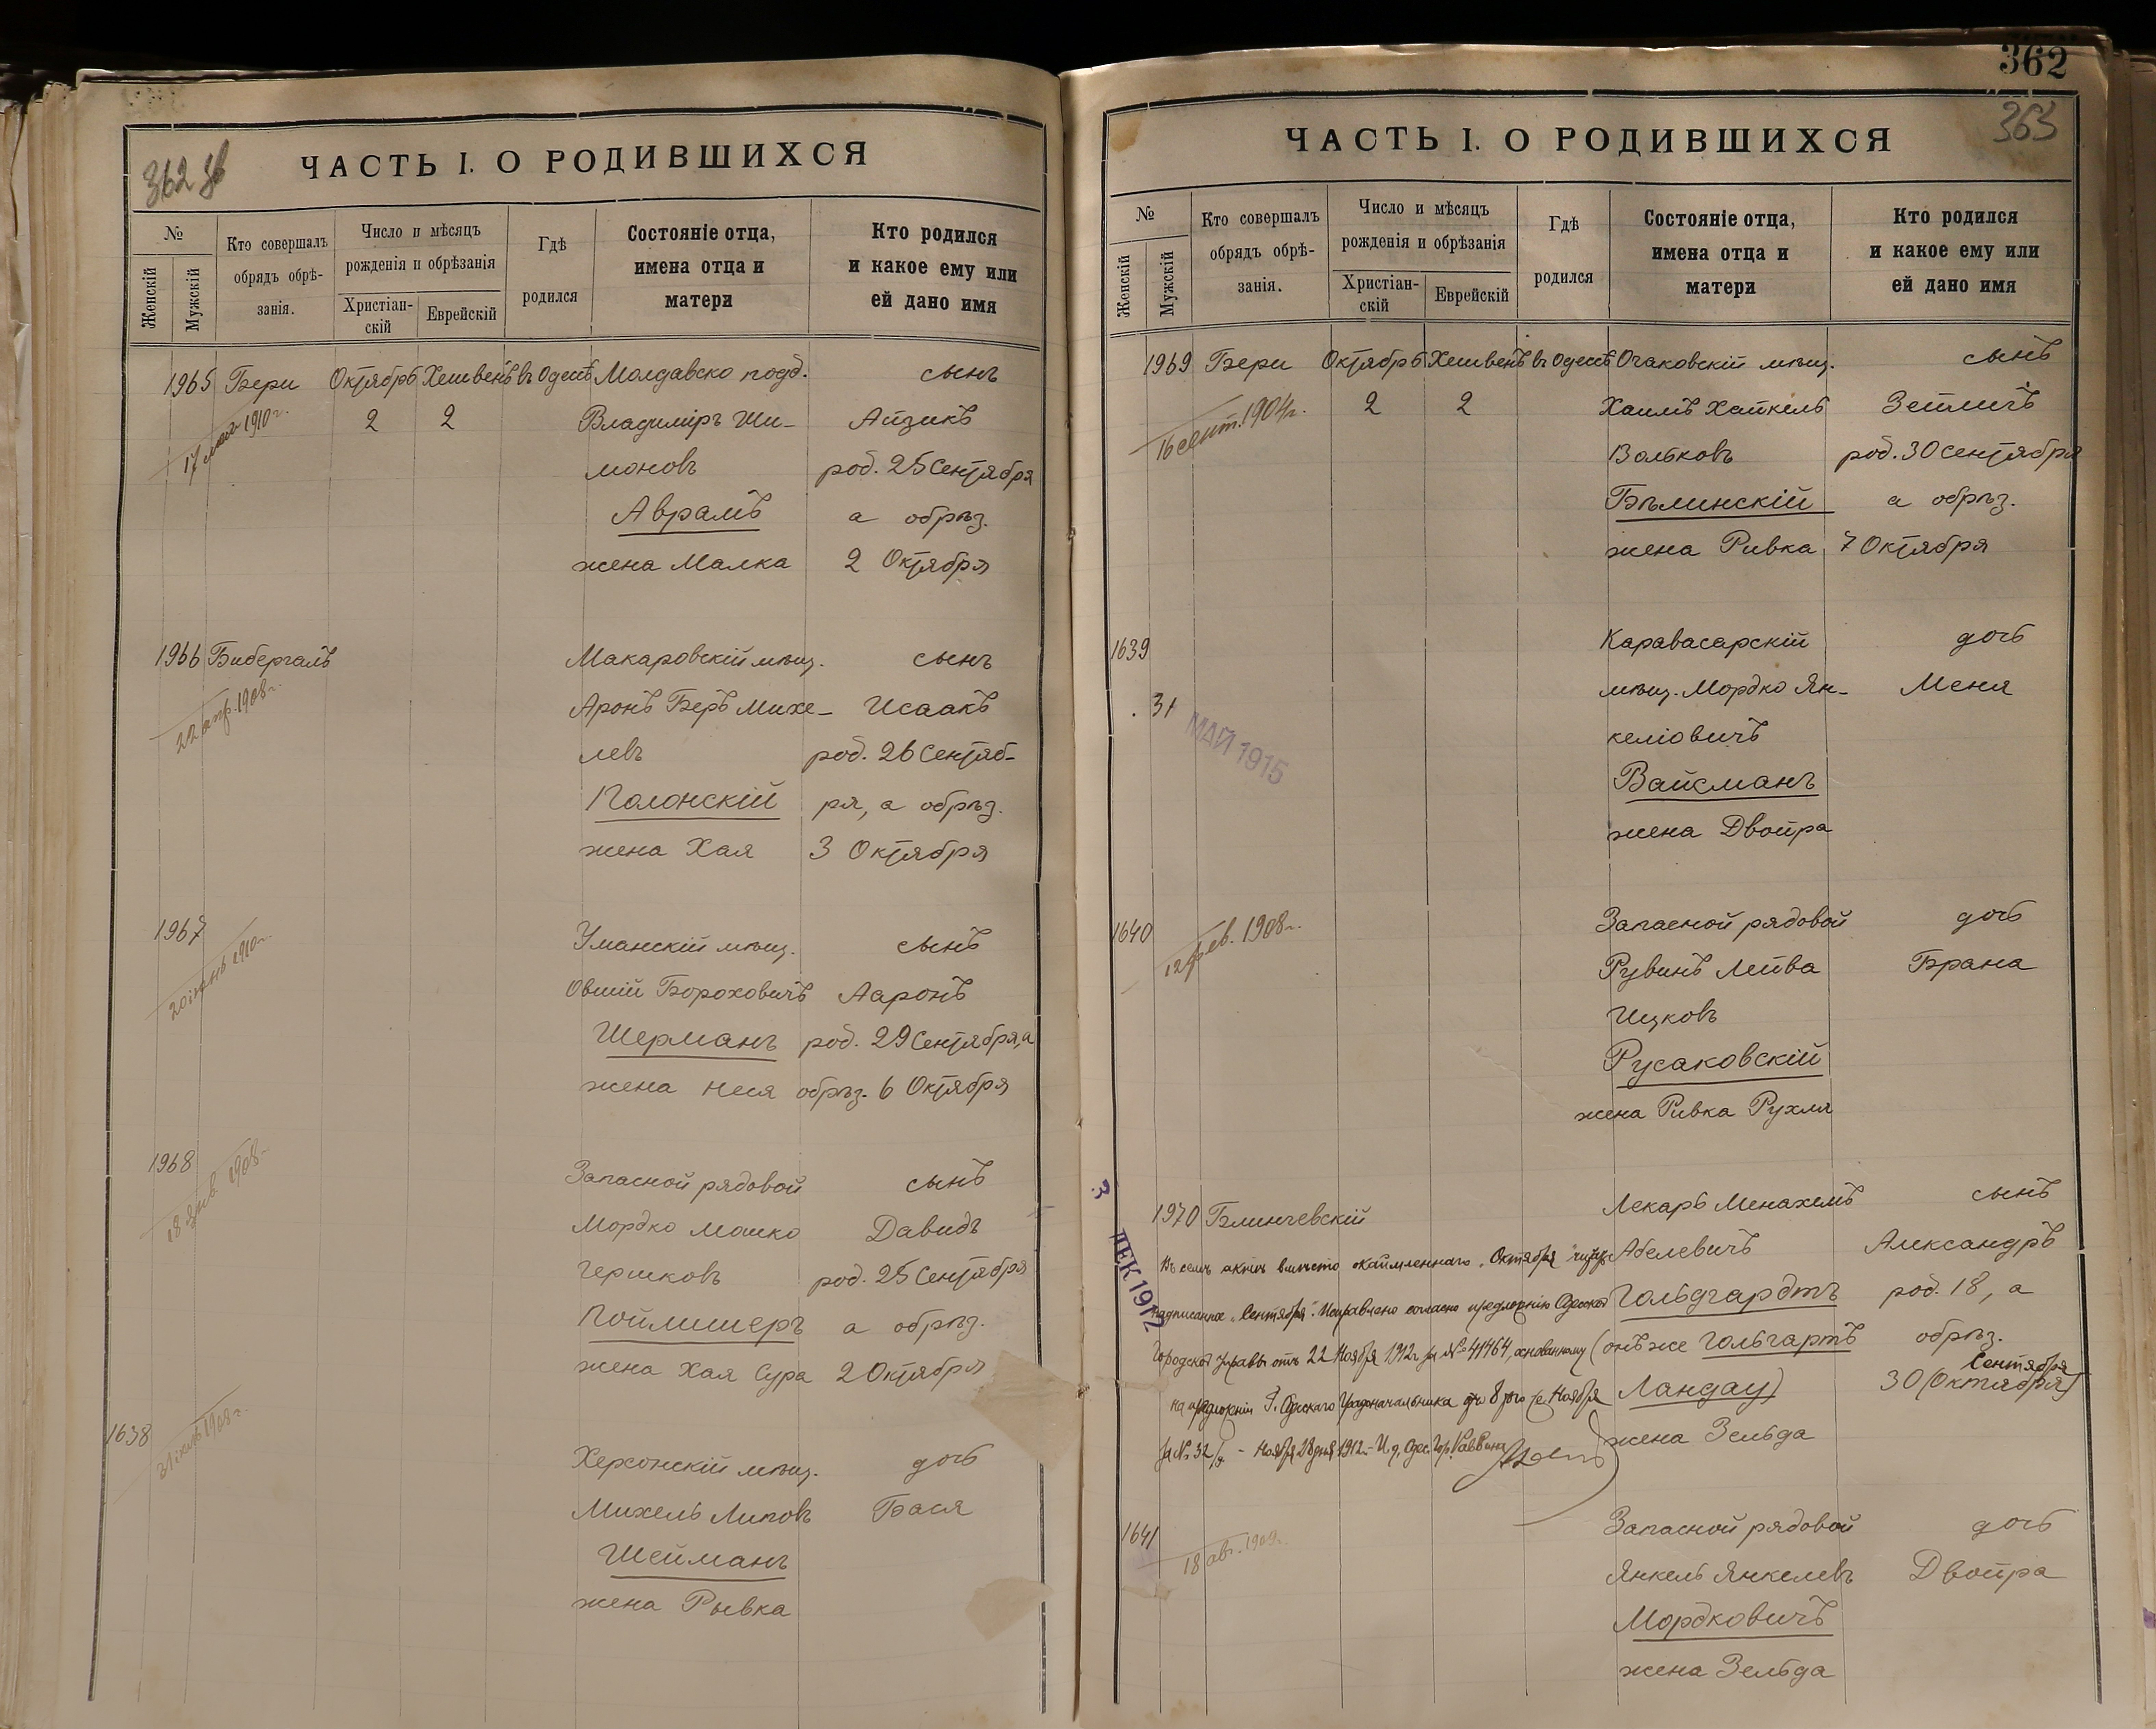 362 об
ЧАСТЬ I. О РОДИВШИХСЯ
№
Женскій
Мужскій
Кто совершалъ
обрядъ обрѣ-
занія.
Число и мѣсяцъ
рожденія и обрѣзанія
Христіан-
скій
Еврейскій
Гдѣ
родился
Состояніе отца,
имена отца и
матери
Кто родился
и какое ему или
ей дано имя
1965 Бери Октябрь Хешвенъ въ Одессѣ Молдавско подд. сынъ
17 мая 1910 г. 2 2 Владиміръ Ши- Айзикъ
моновъ род. 25 Сентября
Аврамъ а обрѣз.
жена Малка 2 Октября
1966 Бибергалъ Макаровскій мѣщ. сынъ
22 апр. 1908 г. Аронъ Беръ Михе- Исаакъ
левъ род. 26 Сентяб-
Полонскій ря, а обрѣз.
жена Хая 3 Октября
1967 Уманскій мѣщ. сынъ
20 іюнь 1910 г. Овшій Бороховичъ Ааронъ
Шерманъ род. 29 Сентября, а
жена Неся обрѣз. 6 Октября
1968 Запасной рядовой сынъ
18 янв. 1908 г. Мордко Мошко Давидъ
Гершковъ род. 25 Сентября
Поймишеръ а обрѣз.
жена Хая Сура 2 Октября
1638 Херсонскій мѣщ. дочь
31 1908 г. Михель Липовъ Бася
Шейманъ
жена Рывка
362
363
ЧАСТЬ I. О РОДИВШИХСЯ
№
Женскій
Мужскій
Кто совершалъ
обрядъ обрѣ-
занія.
Число и мѣсяцъ
рожденія и обрѣзанія
Христіан-
скій
Еврейскій
Гдѣ
родился
Состояніе отца,
имена отца и
матери
Кто родился
и какое ему или
ей дано имя
1969 Бери Октябрь Хешвенъ въ Одессѣ Очаковскій мѣщ. сынъ
16 сент. 1904 г. 2 2 Хаимъ Хайкель Зейличъ
Вольковъ род. 30 Сентября
Бѣлинскій а обрѣз.
жена Ривка 7 Октября
1639 Каравасарскій дочь
31 МАЙ 1915 мѣщ. Мордко Ян- Меня
келіовичъ
Вайсманъ
жена Двойра
1640 Запасной рядовой дочь
12 фев. 1908 г. Рувинъ Лейва Брана
Ицковъ
Русаковскій
жена Ривка Рухля
3 ДЕК 1912
1970 Блинчевскій Лекарь Менахемъ сынъ
Въ семъ актѣ вмѣсто окаймленнаго „Октября" Абелевичъ Александръ
надписанное „Сентября". Исправлено согласно предложенію Одесской Гольдгардтъ род. 18, а
Городской Управы отъ 22 Ноября 1912 г. за № 41464, основанному (онъ же Гольгартъ обрѣз.
Сентября
на предложеніи Г. Одесскаго Градоначальника отъ 8 того же Ноября Ландау) 30 (Октября)
за № 32 Ноября 28 дня 1912 г. И. д. Одес. Гор. Раввина жена Зельда
1641 Запасной рядовой дочь
18 авг. 1909 г. Янкель Янкелевъ Двойра
Мордковичъ
жена Зельда